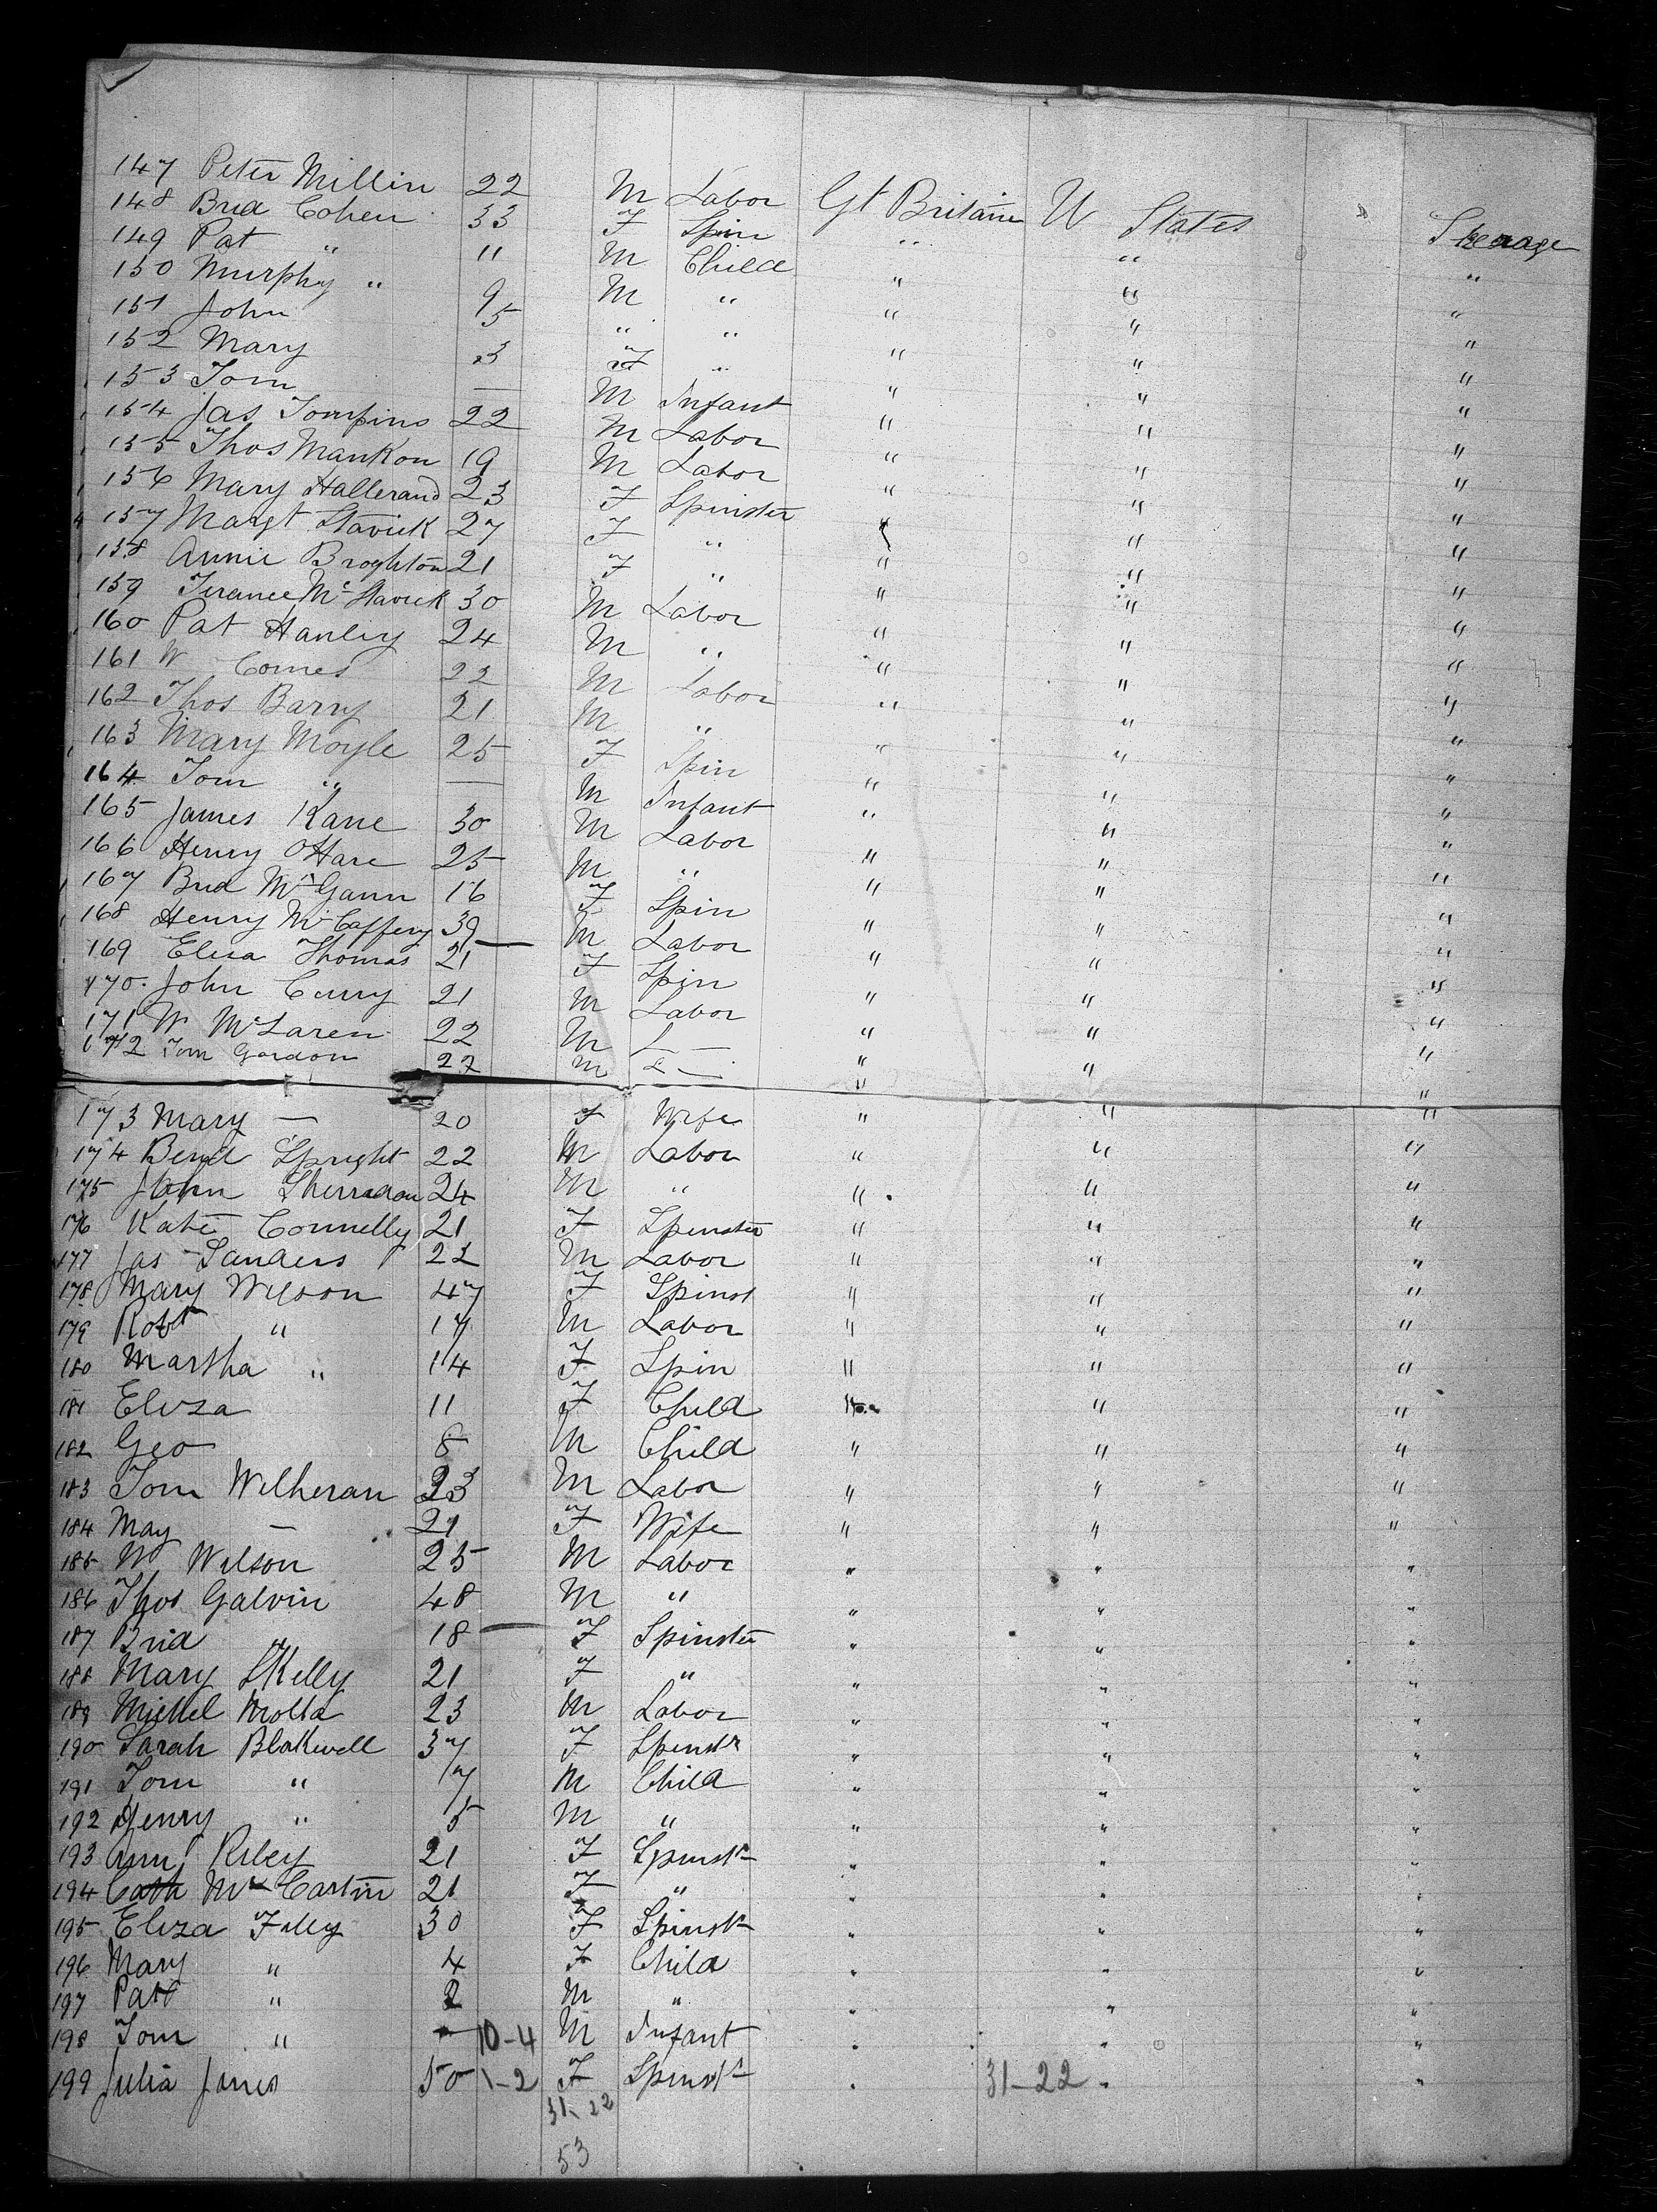 147 Peter Millin 22 M Labor Gt Britain U States Steerage
148 Brid Cohen 33 F Spin " " "
149 Pat " 11 M Child " " "
150 Murphy " 9 M " " " "
151 John 5 " " " " "
152 Mary 3 F " " " "
153 Tom — M Infant " " "
154 Jas Tompins 22 M Labor " " "
155 Thos Mankon 19 M Labor " " "
156 Mary Hallerand 23 F Spinster " " "
157 Margt Slavick 27 F " " " "
158 Annie Broghton 21 F " " " "
159 Terance McSlavick 30 M Labor " " "
160 Pat Hanley 24 M " " " "
161 W Comes 22 M Labor " " "
162 Thos Barry 21 M " " " "
163 Mary Moyle 25 F Spin " " "
164 Tom " — M Infant " " "
165 James Kane 30 M Labor " " "
166 Henry OHare 25 M " " " "
167 Brid McGann 16 F Spin " " "
168 Henry McCaffery 39 M Labor " " "
169 Eliza Thomas 21 F Spin " " "
170 John Curry 21 M Labor " " "
171 W McLaren 22 M L — " " "
172 Tom Gordon 22 M L — " " "
173 Mary — 20 F Wife " " "
174 Bernd Spright 22 M Labor " " "
175 John Sherradan 24 M " " " "
176 Kate Connelly 21 F Spenster " " "
177 Jas Sanders 22 M Labor " " "
178 Mary Wilson 47 F Spinst " " "
179 Robt " 17 M Labor " " "
180 Martha " 14 F Spin " " "
181 Eliza 11 F Child " " "
182 Geo 8 M Child " " "
183 Tom Wilheran 23 M Labor " " "
184 May — 21 F Wife " " "
185 W Wilson 25 M Labor " " "
186 Thos Galvin 48 M " " " "
187 Brid 18 — F Spinster " " "
188 Mary SKelly 21 F " " " "
189 Michel Molla 23 M Labor " " "
190 Sarah Blakwell 37 F Spenstr " " "
191 Tom " 7 M Child " " "
192 Henry " 5 M " " " "
193 Ann Riley 21 F Spinstr " " "
194 Cath McCartin 21 F " " " "
195 Eliza Filey 30 F Spinstr " " "
196 Mary " 4 F Child " " "
197 Patt " 2 M " " " "
198 Tom " — 10-4 M Infant " " "
199 Julia Jones 50 1-2 F Spinstr " 31-22 " "
31-22
53